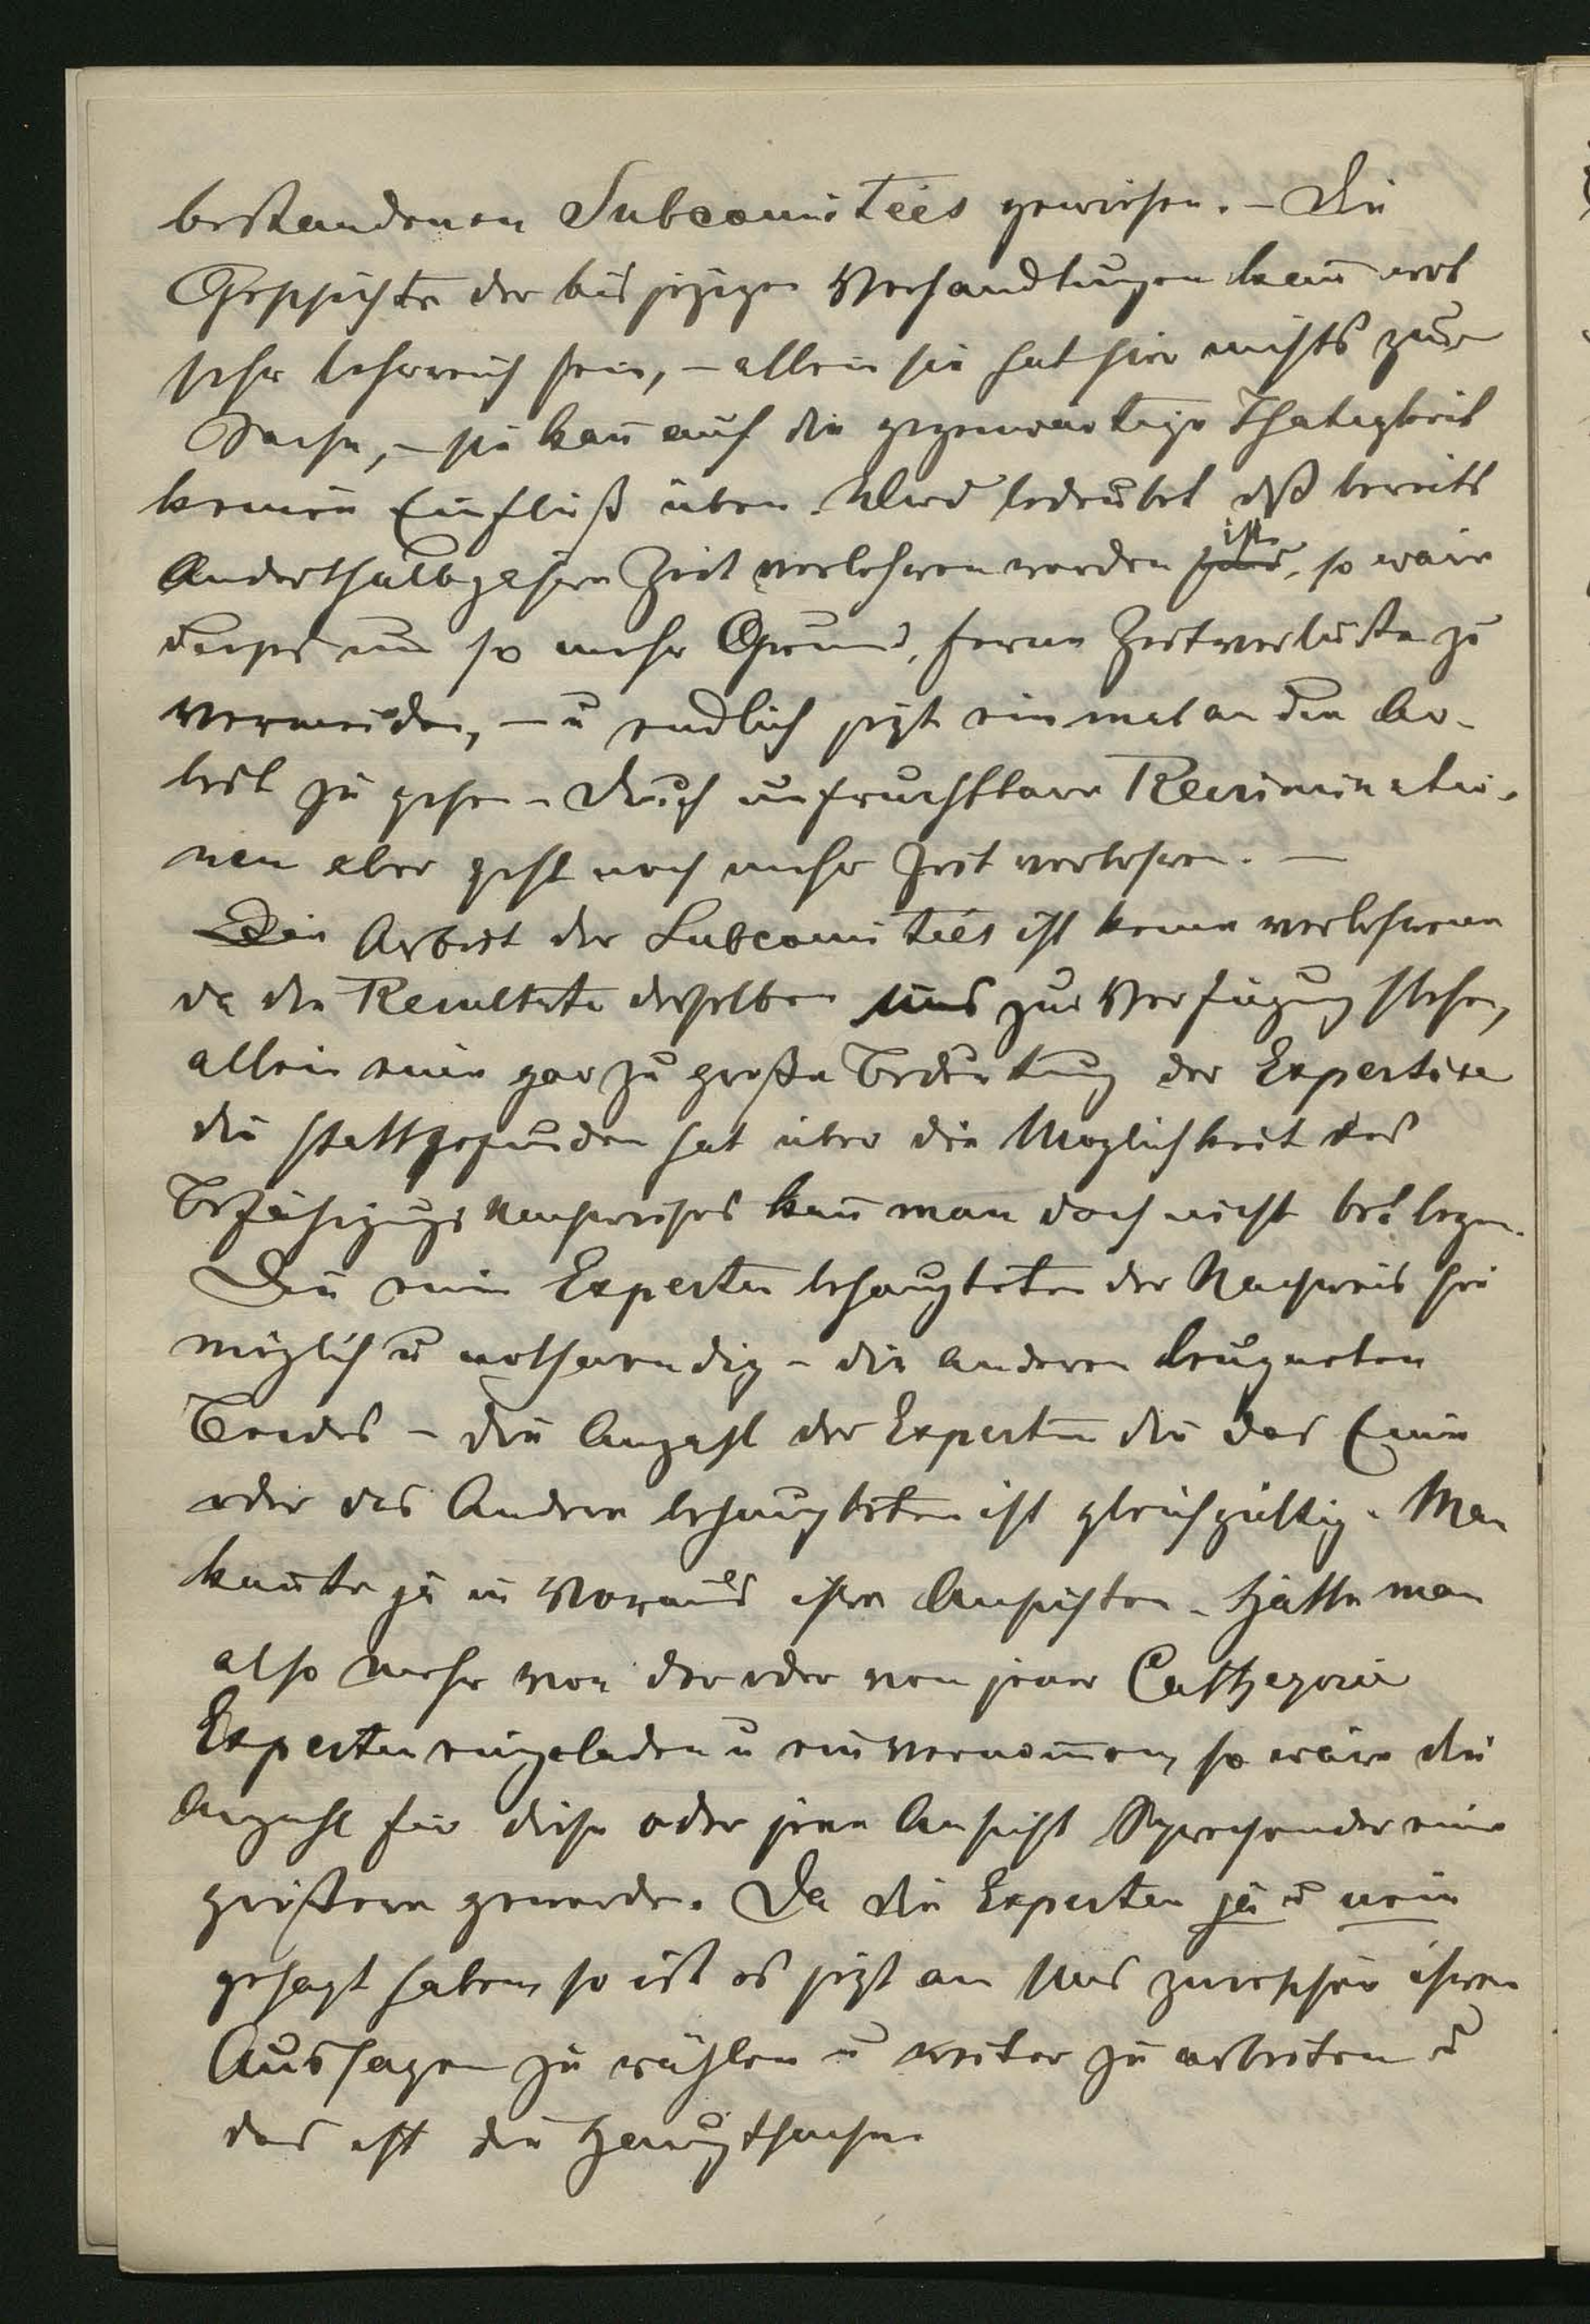 bestandenen Subcomitées gewiesen. – Die
Geschichte der bis jezigen Verhandlungen kan̄ wol
sehr lehrreich sein, – allein sie hat hier nichts zur
Sache, – sie kan̄ auf die gegenwartige Thatigkeit
keinen Einfluß üben. Wird bedeutet dß bereits
Anderthalb Jahre Zeit verlohren worden ist, so wäre
dieses um so mehr Grund, ferne Zeitverluste zu
vermeiden, – u endlich jezt einmal an die Ar-
beit zu gehen – durch unfruchtbare Recriminatio-
nen aber geht noch mehr Zeit verlohren. –
Die Arbeit der Subcomitées ist keine verlohrene
da die Resultate derselben uns zur Verfügung stehen,
allein eine gar zu große Bedeutung der Expertise
die stattgefunden hat über die Moglichkeit des
Befähigungs Nachweises kan̄ man doch nicht beilegen.
Die einen Experten behaupteten der Nachweis sei
möglich u nothwendig – die anderen leugneten
Beides – die Anzahl der Experten die das Eine
oder das Andere behaupteten ist gleichgültig. Man
kan̄te ja im Voraus ihre Ansichten. Hätte man
also mehr von der oder von jener Cathegorie
Experten eingeladen u einvernom̄en, so wäre die
Anzahl für diese oder jene Ansicht Sprechender eine
größere geworden. Da die Experten ja u nein
gesagt haben, so ist es jezt an Uns zwischen ihren
Aussagen zu wählen u weiter zu arbeiten u
das ist die Hauptsache.